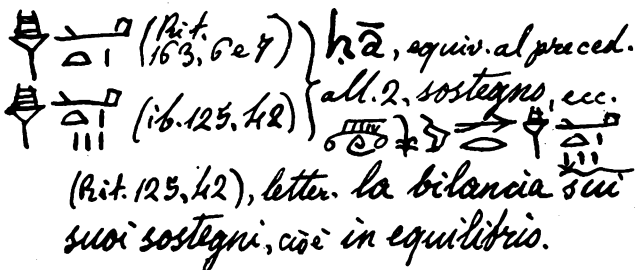 (Rit. 163, 6 e 7) ḥā, equiv. al preced.
(ib. 125, 42) all. 2, sostegno, ecc.
(Rit. 125, 42), letter. la bilancia sui
suoi sostegni, cioè in equilibrio.